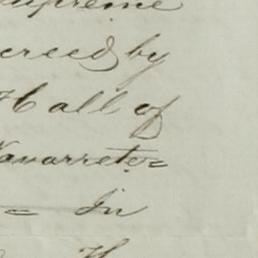 Supreme
creed by
Hall of
Navarrete=
= In
H